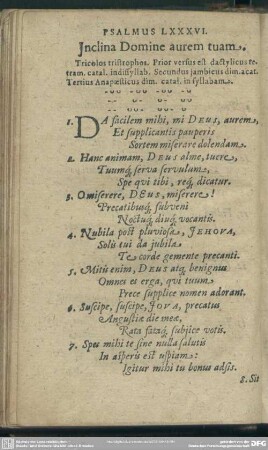 PSALMUS LXXXVI.
Inclina Domine aurem tuam.
Tricolos tristrophos. Prior versus est dactylicus te-
tram. catal. indissyllab. Secundus jambicus dim. acat.
Tertius Anapæsticus dim. catal. in syllabam.
1. DA facilem mihi, mi DEUS, aurem,
Et supplicantis pauperis
Sortem miserare dolendam.
2. Hanc animam, DEUS alme, tuere,
Tuumq́; serva servulum,
Spe qvi tibi, req́; dicatur.
3. O miserere, DEUS, miserere!
Precatibusq́; subveni
Noctuq́; diuq́; vocantis.
4. Nubila post pluviosa, JEHOVA,
Solis tui da jubila
Te corde gemente precanti.
5. Mitis enim, DEUS atq́; benignus
Omnes et erga, qvi tuum
Prece supplice nomen adorant.
6. Suscipe, suscipe, JOVA, precatus
Angustiæ die meæ,
Rata fataq́; subjice votis.
7. Spes mihi te sine nulla salutis
In asperis est uspiam:
Igitur mihi tu bonus adsis.
8. Sit